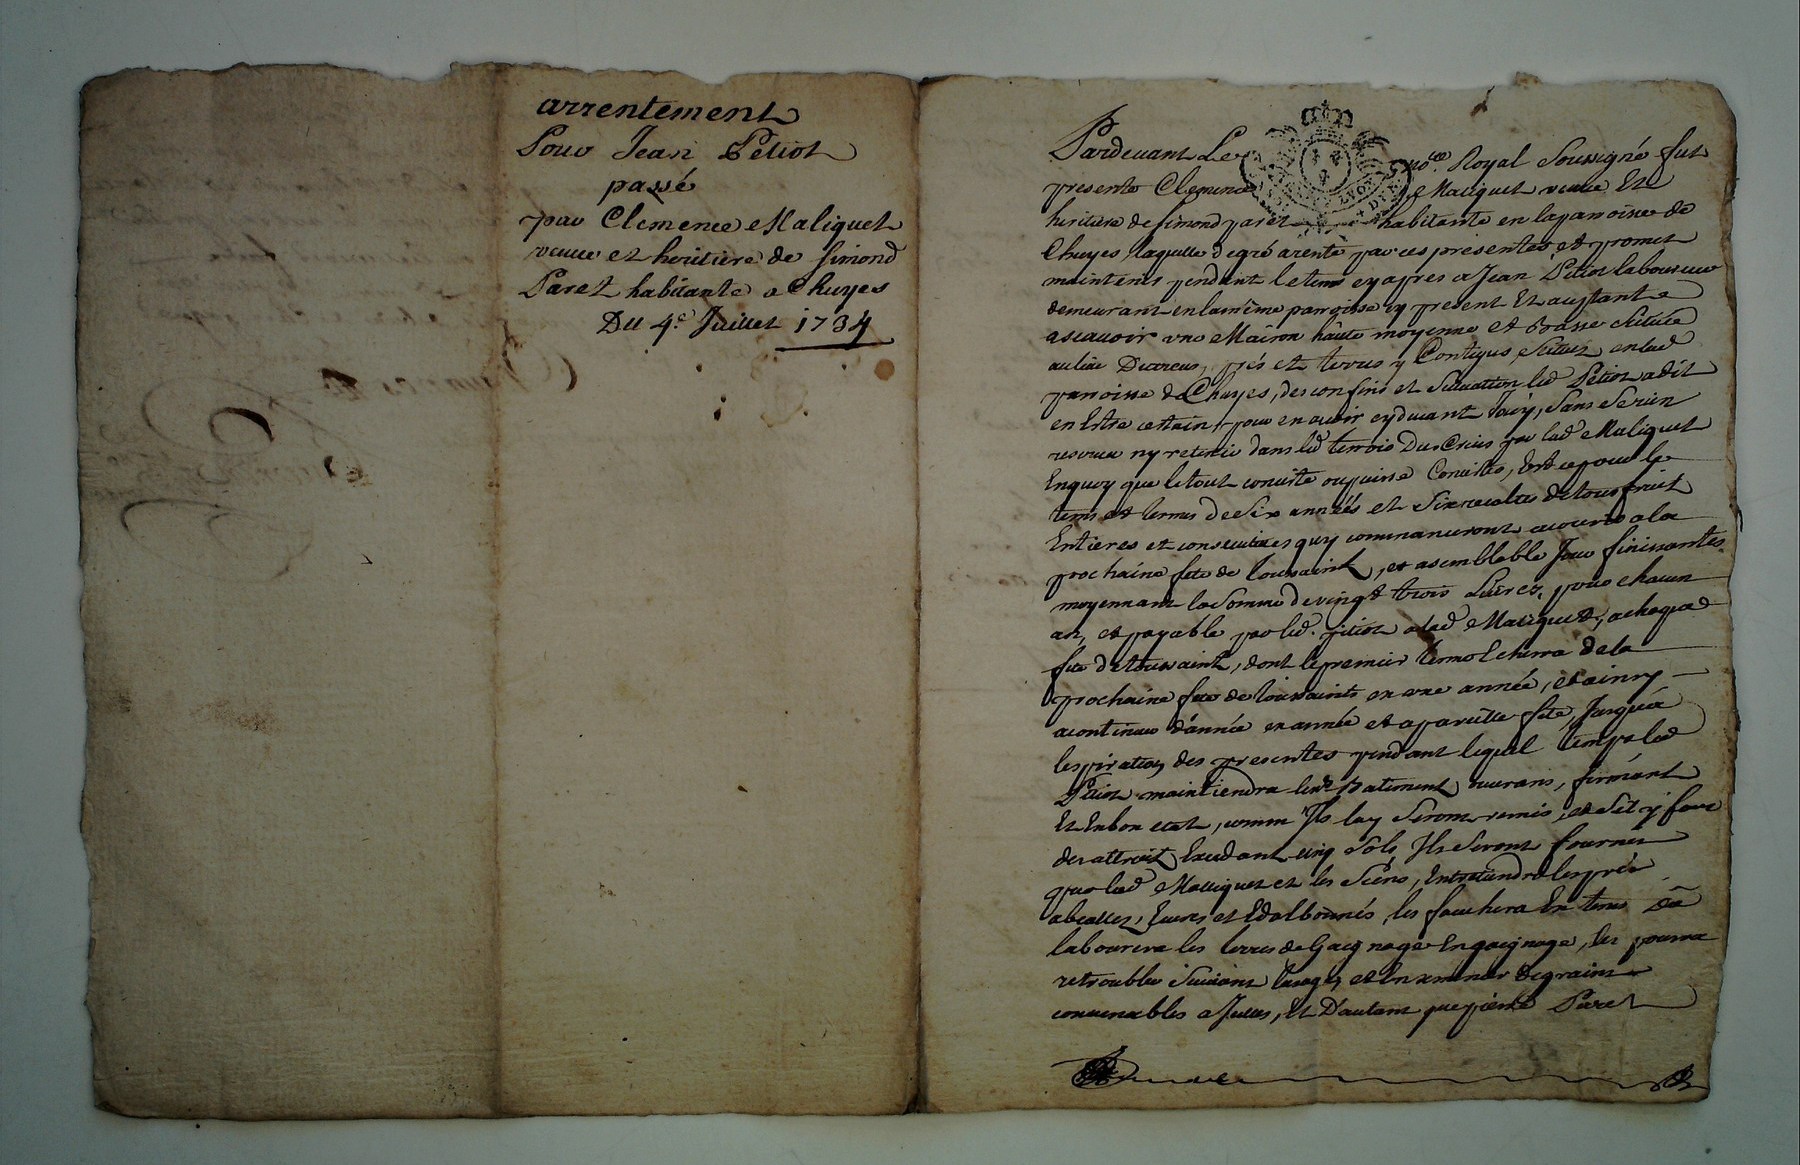 arrentement
Pour Jean Petiot
passé
par Clemence Maliquet
veuve et heritiere de Simond
Paret habitante a Chuyes
Du 4e Juillet 1734
Pardevant Le no.re Royal Soussigné fut
presente Clemence Maliquet veuve Et
heritiere de Simond paret habitante en la parroisse de
Chuyes laquelle de gré arente par ces presentes et promet
maintenir pendant le tems cy apres a Jean Petiot laboureur
demeurant en la même parroisse cy present Et aceptant
ascavoir une Maison haute moyenne et basse Scituée
au lieu prés et terres y Contigus Scitués en lad
parroisse de Chuyes, des confins et Scituation led Petiot a dit
en Estre certain pour en avoir cy devant Joüy, Sans Se rien
reserver ny retenir dans led terroir par lad Maliquet
Enquoy que le tout consiste ou puisse Consister, Est ce pour le
tems et termes de Six années et Six recoltes de tous fruit
Entieres et consecutives quy commanceront a courir a la
prochaine fete de toussaint, et a semblable Jour finissantes
moyennant la Somme de vingt trois Livres, pour chacun
an, et payable par led. petiot a lad Maliquet, a chaque
fete de toussaint, dont le premier terme Echerra de la
prochaine fete de toussaints en une année, et ainsy
a continuer d'année en année et a pareille fete, Jusqu'a
lespiration des presentes pendant lequel temps led
Petiot maintiendra led batiment couverts, fermant
Et En bon etat, comme Ils luy Seront remis, et Sil y faut
des attraits Excedant cinq Sols, Ils Seront fournis
par lad Malliquet et les Siens, Entretiendra les prés
les fauchera En tems
labourera les terres de Gaignage En gaignage, les pourra
retroubler Suivant lusage, et Ensemencer de grains
convenables a Jcelles, Et D'autant que pierre Paret